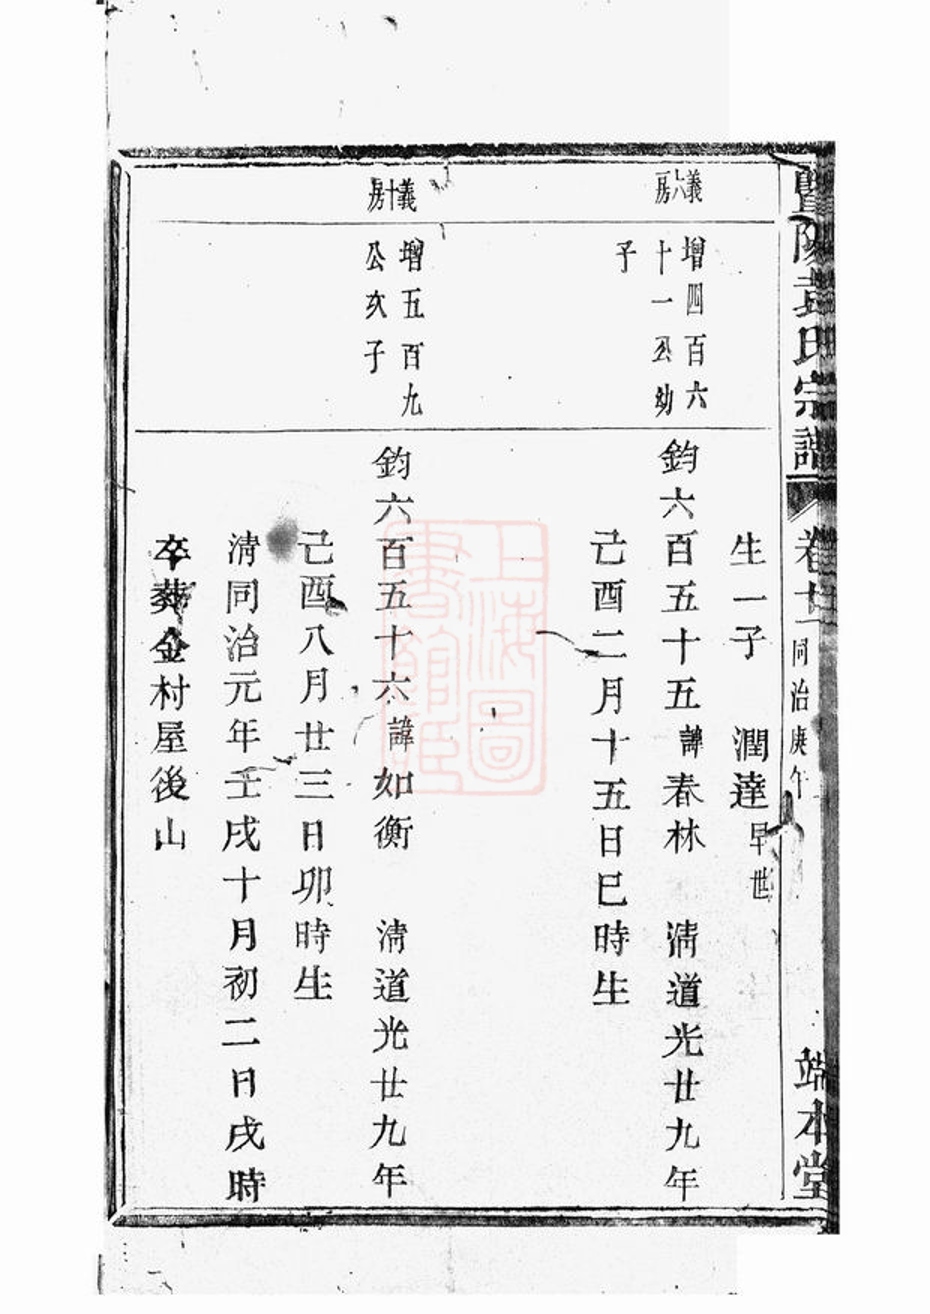 暨陽袁氏宗譜 卷廿二 同治庚午 端本堂
生一子 潤達早世
義六房
增四百六
十一公幼
子
鈞六百五十五諱春林 清道光廿九年
己酉二月十五日巳時生
義十房
增五百九
公次子
鈞六百五十六諱如衡 清道光廿九年
己酉八月廿三日卯時生
清同治元年壬戌十月初二日戌時
卒葬金村屋後山
上海圖
書館藏